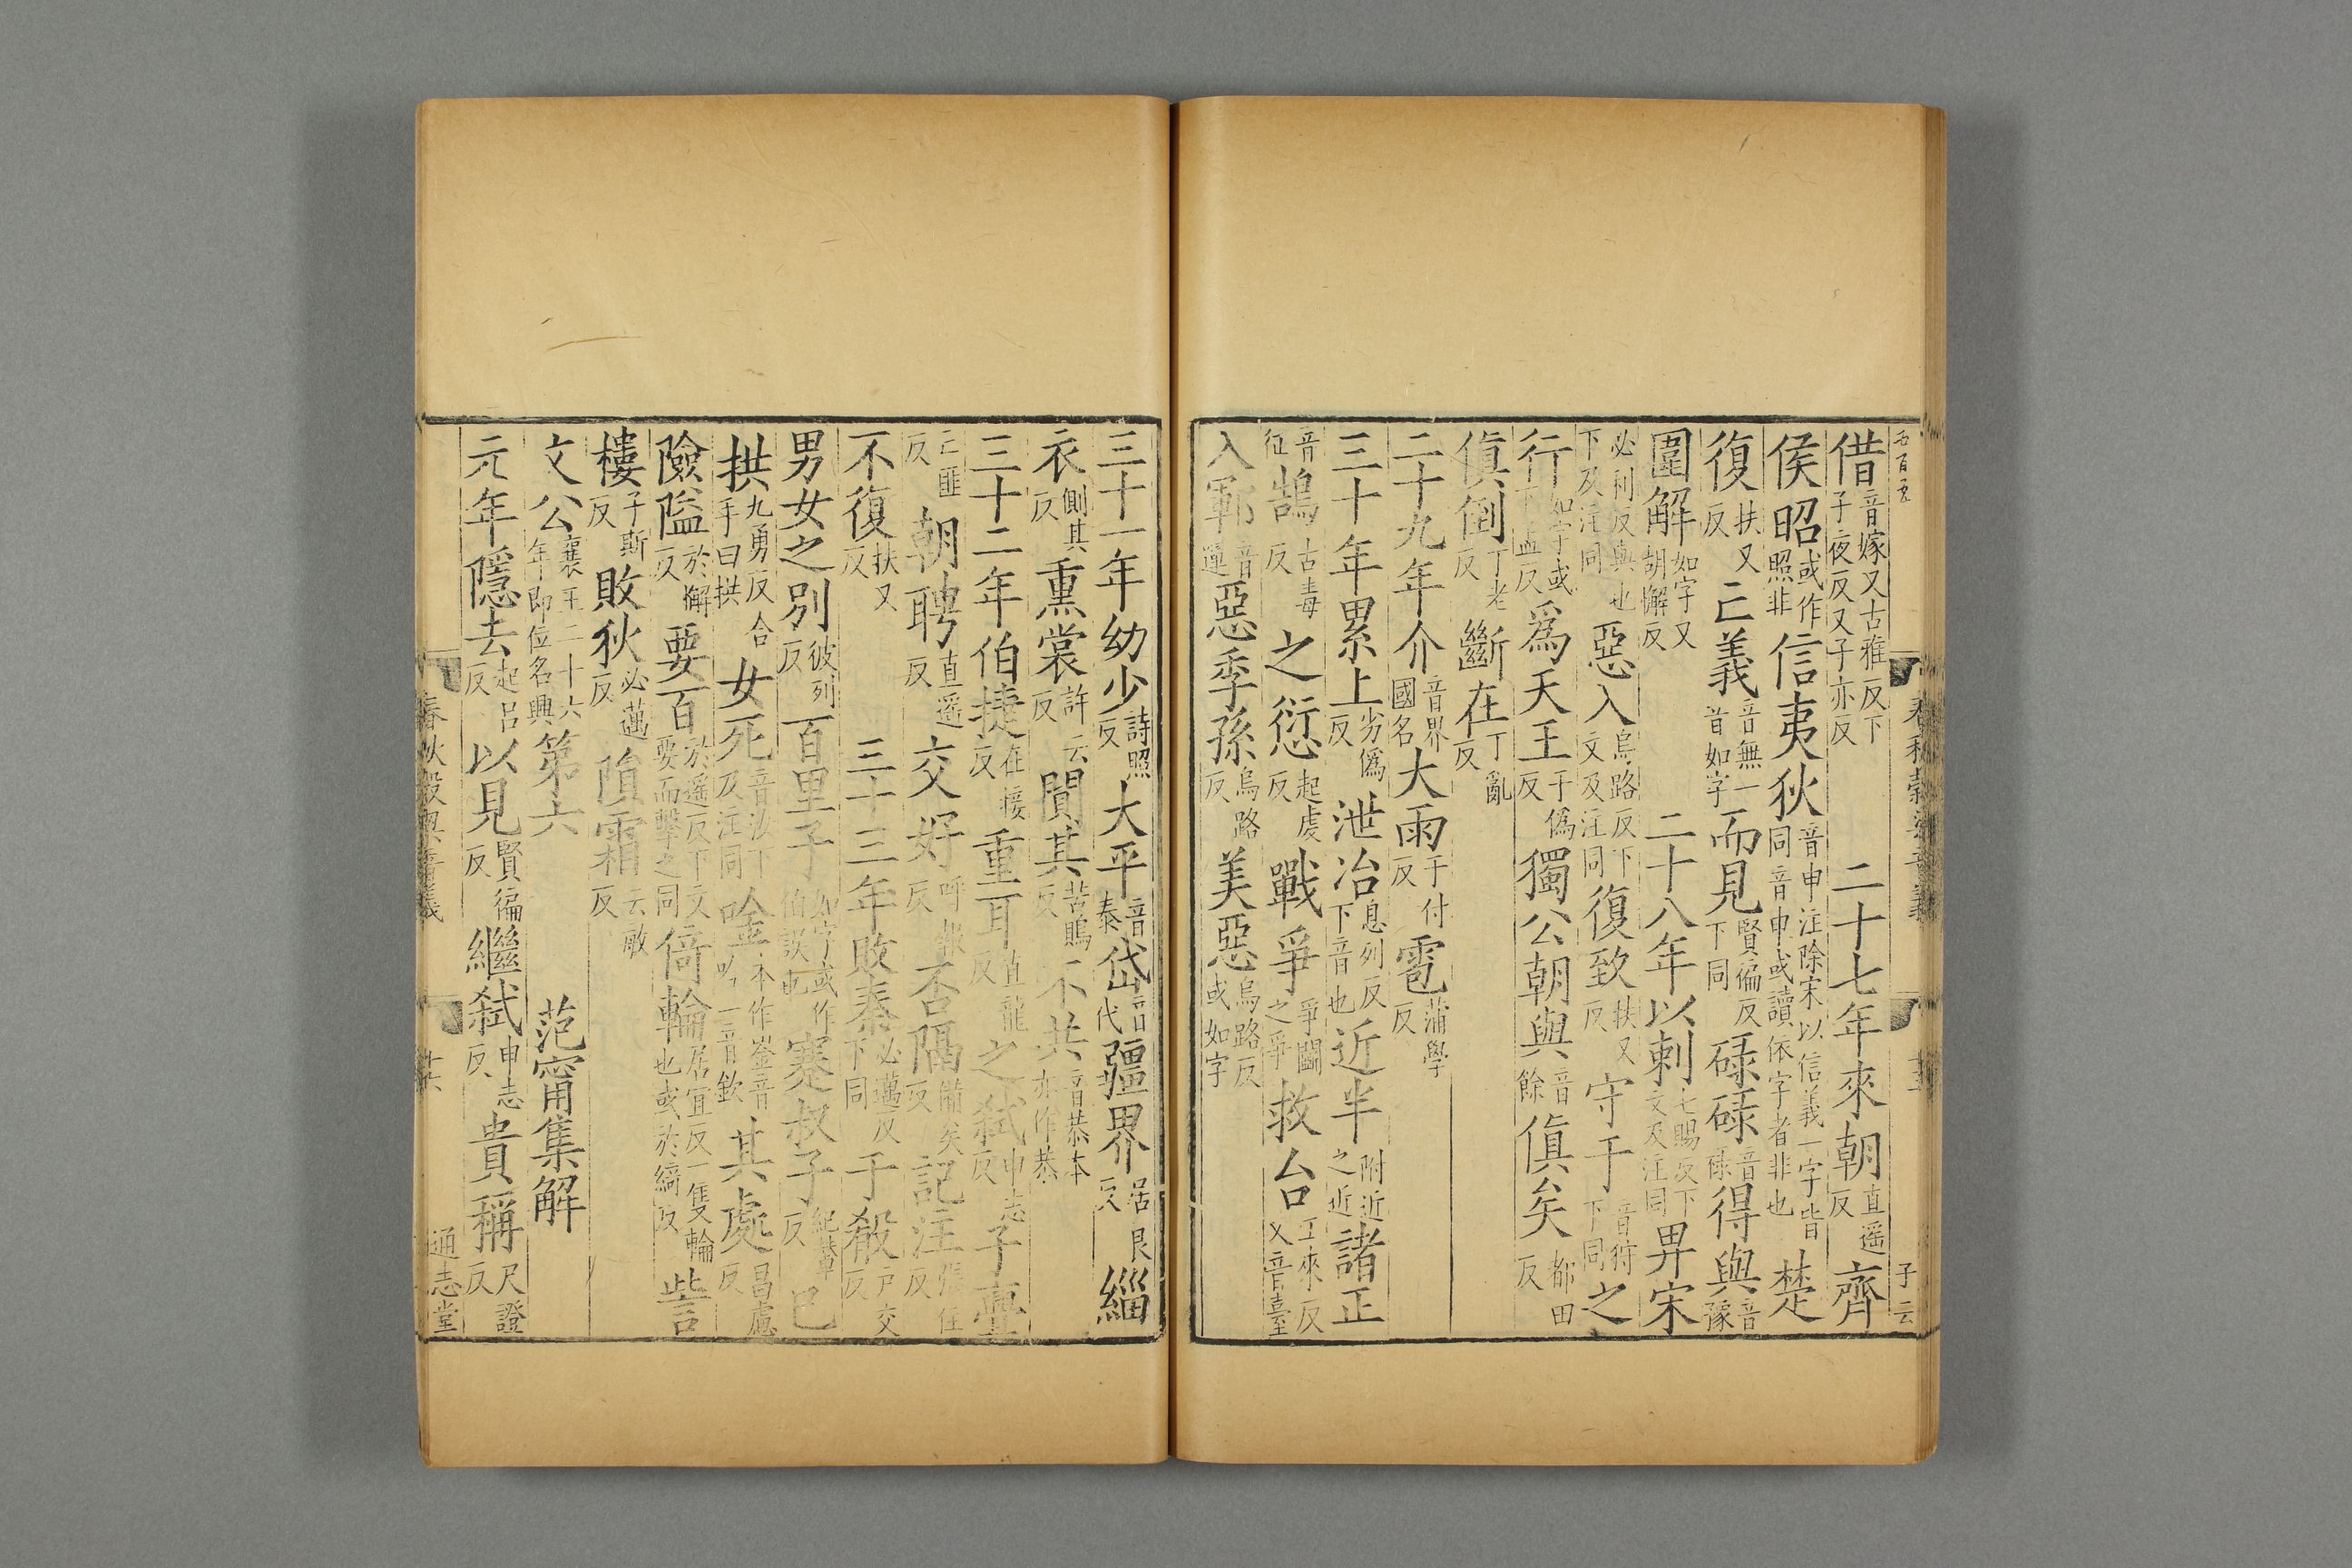 春秋穀梁音義
子云
借音嫁又古雅反下子夜反又子亦反 二十七年來朝直遥反齊
侯昭或作照非信夷狄音申注除宋以信義一字皆同音申或讀依字者非也楚
復扶又反亡義音無一音如字而見賢徧反下同碌碌音碌得與音豫
圍解如字又胡懈反 二十八年以刺七賜反下文及注同畀宋
必利反與也下及注同惡入烏路反下文及注同復致扶又反守于音狩下同之
行如字或下孟反爲天王于僞反獨公朝與音餘傎矣都田反
傎倒丁老反斷在丁亂反
二十九年介音界國名大雨于付反雹蒲學反
三十年累上劣僞反泄冶息列反下音也近半附近之近諸正
音征鵠古毒反之愆起虔反戰爭爭鬬之爭救台工來反又音臺
入鄆音運惡季孫烏路反美惡烏路反或如字
三十一年幼少詩照反大平音泰岱音代疆界居良反緇
衣側其反熏裳許云反閴其苦鵙反不共音恭本亦作恭
三十二年伯捷在接反重耳直龍反之弑申志反子虿
亡匪反朝聘直遥反交好呼報反否隔備矣反記注張住反
不復扶又反 三十三年敗秦必邁反下同于殽户交反
男女之別彼列反百里子如字或作伯誤也蹇叔子紀輦反巳
拱九勇反合手曰拱女死音汝下及注同唫本作崟音吟一音欽其處昌慮反
險隘於懈反要百於遥反下文要而擊之同倚輪居宜反一隻輪也或於綺反訾
樓子斯反敗狄必邁反隕霜云敏反
文公襄王二十六年即位名興第六 范甯集解
元年隱去起呂反以見賢徧反繼弑申志反貴稱尺證反
春秋穀梁音義
通志堂